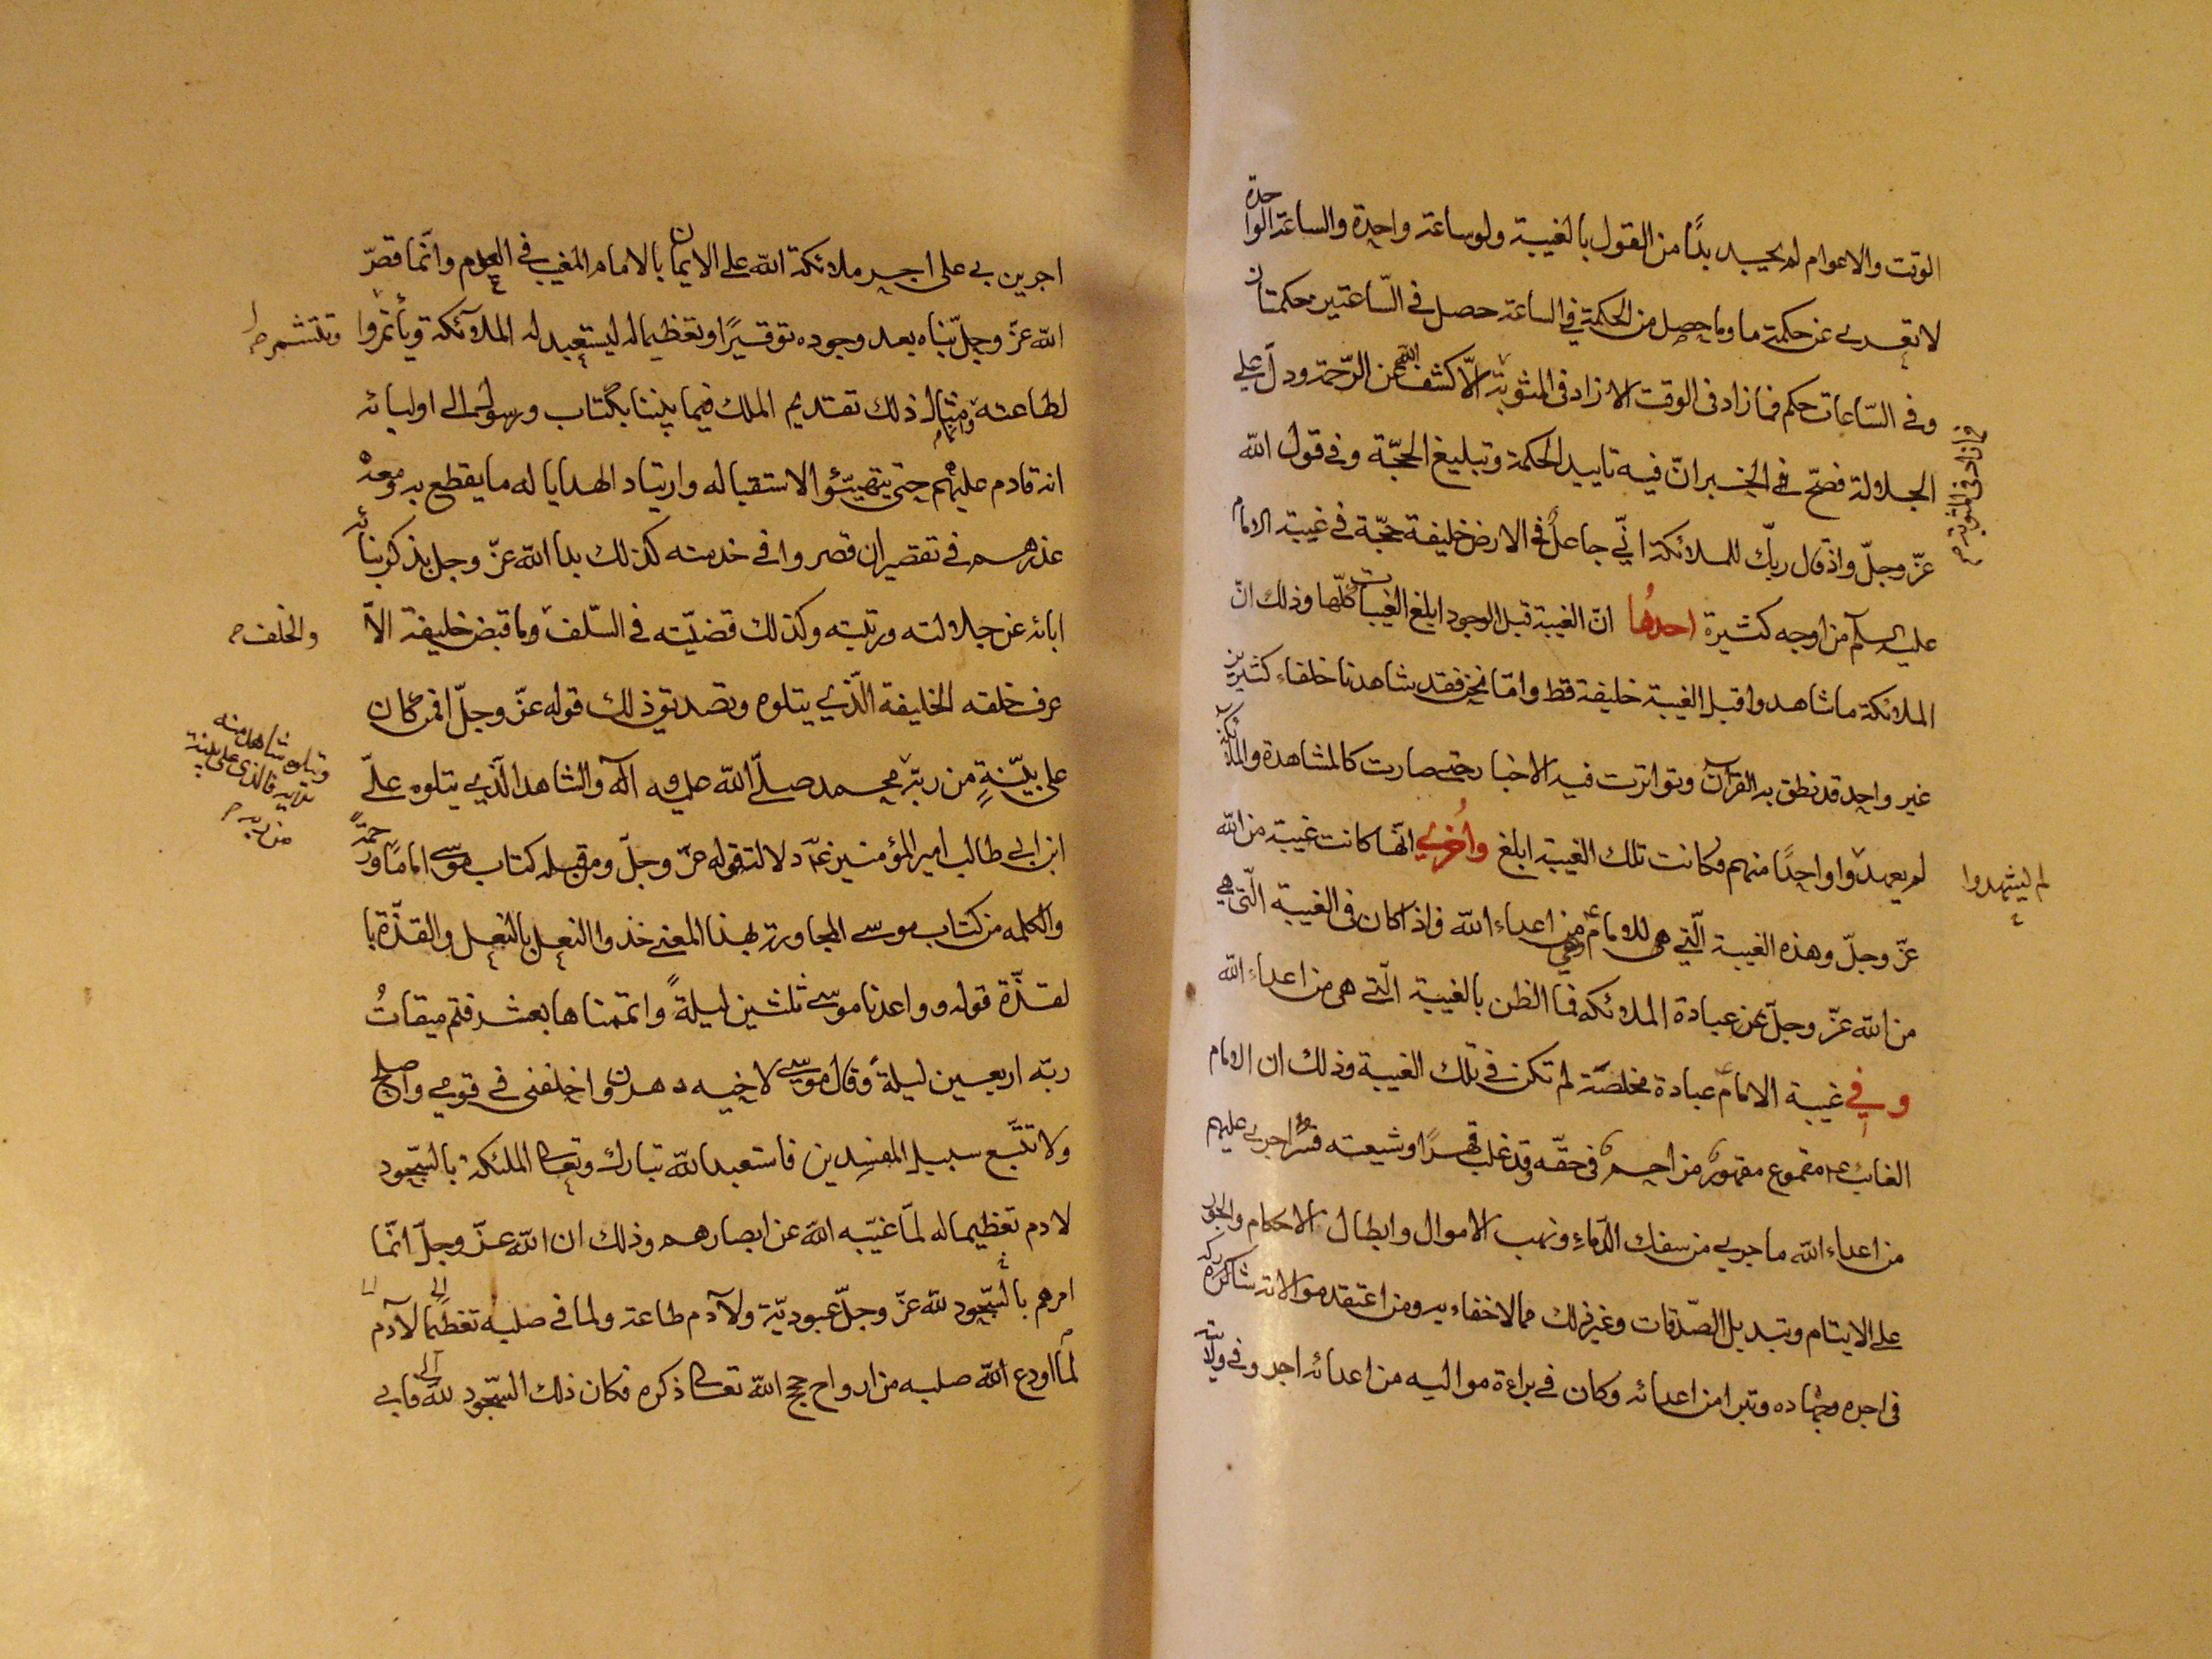 الوقت والاعوام لم يجد بدًّا من القول بالغيبة ولو ساعة واحدة والساعة الواحدة
لا تعدى عن حكمة ما وما حصل من الحكمة في الساعة حصل في السّاعتين حكمتان
وفي السّاعات حكم فما زاد في الوقت الا زاد في المثوبة الّا كشف عن الرّحمة ودلّ على
فما زاد في المثوبة
الجلالة فصحّ في الخبر انّ فيه تاييد الحكمة وتبليغ الحجّة وفي قول الله
عزّ وجلّ واذ قال ربّك للملائكة انّي جاعلٌ في الارض خليفة حجّة في غيبة الامام
عليه السلام من اوجه كثيرة احدها انّ الغيبة قبل الوجود ابلغ الغيبات كلّها وذلك انّ
الملائكة ما شاهدوا قبل الغيبة خليفة قط وامّا نحن فقد شاهدنا خلفاء كثيرين
غير واحد قد نطق به القرآن وتواترت فيه الاخبار حتى صارت كالمشاهدة والملائكة
لم يعهدوا واحدًا منهم فكانت تلك الغيبة ابلغ وأخرى انّها كانت غيبة من الله
لم يشهدوا
عزّ وجلّ وهذه الغيبة الّتي هي للامام من اعداء الله فاذا كان في الغيبة الّتي هي
من الله عزّ وجلّ عبادة الملائكة فما الظن بالغيبة الّتي هي من اعداء الله
وفي غيبة الامام عبادة مخلصة لم تكن في تلك الغيبة وذلك ان الامام
الغائب مقموع مقهور مزاحم في حقّه قد غلب قهرًا وشيعته قسرًا جرى عليهم
من اعداء الله ما جرى من سفك الدّماء ونهب الاموال وابطال الاحكام والجور
على الايتام وتبديل الصّدقات وغير ذلك ممّا لا خفاء به ومن اعتقد موالاته شاركه
في اجره وجهاده وتبرا من اعدائه وكان في براءة مواليه من اعدائه اجر وفي ولاية
اجرين بي على اجر ملائكة الله على الايمان بالامام المغيب في العدم وانّما قصّ
الله عزّ وجلّ نباه بعد وجوده توقيرًا وتعظيما له ليستعبد له الملائكة ويأتمروا
لطاعته ومثال ذلك تقديم الملك فيما بيننا بكتاب ورسول الى اوليائه
انه قادم عليهم حتى يتهيّئوا لاستقباله وارتياد الهدايا له ما يقطع به ومعه
عذرهم في تقصير ان قصروا في خدمته كذلك بدا الله عزّ وجل بذكر نبائه
ابانه عن جلالته ورتبته وكذلك قضيّته في السّلف وما قبض خليفة الّا
والخلف
عرف خلقه الخليفة الّذي يتلوه وتصديق ذلك قوله عزّ وجلّ افمن كان
على بيّنةٍ من ربّه محمد صلّى الله عليه وآله والشاهد الّذي يتلوه علىّ
ويتلوه شاهد منه
فالذي على بينة
من ربه
ابن ابي طالب امير المؤمنين دلالته قوله عزّ وجلّ ومن قبله كتاب موسى امامًا ورحمةً
والكلمه من كتاب موسى المحاورة بهذا المعنى خذوا النعل بالنعل والقذّة با
لقذّة قوله وواعدنا موسى ثلثين ليلةً واتممناها بعشر فتم ميقاتُ
ربّه اربعين ليلةً وقال موسى لاخيه هرون اخلفنى في قومي واصلح
ولا تتّبع سبيل المفسدين فاستعبد الله تبارك وتعالى الملئكة بالسّجود
لادم تعظيما له لمّا غيّبه الله عن ابصارهم وذلك ان الله عزّ وجلّ انّما
امرهم بالسّجود لله عزّ وجلّ عبوديّة ولآدم طاعة ولما في صلبه تعظيما لآدم
لمّا اودع الله صلبه من ارواح حجج الله تعالى ذكره فكان ذلك السّجود لله فابى